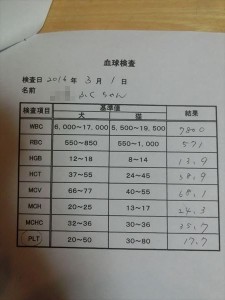 血球検査
検査日 2016 年 3 月 1 日
名前 ふくちゃん
検査項目 基準値 結果
犬 猫
WBC 6,000～17,000 5,500～19,500 9800
RBC 550～850 550～1,000 571
HGB 12～18 8～14 13.9
HCT 37～55 24～45 38.9
MCV 66～77 40～55 68.1
MCH 20～25 13～17 24.3
MCHC 32～36 30～36 35.7
PLT 20～50 30～80 17.7